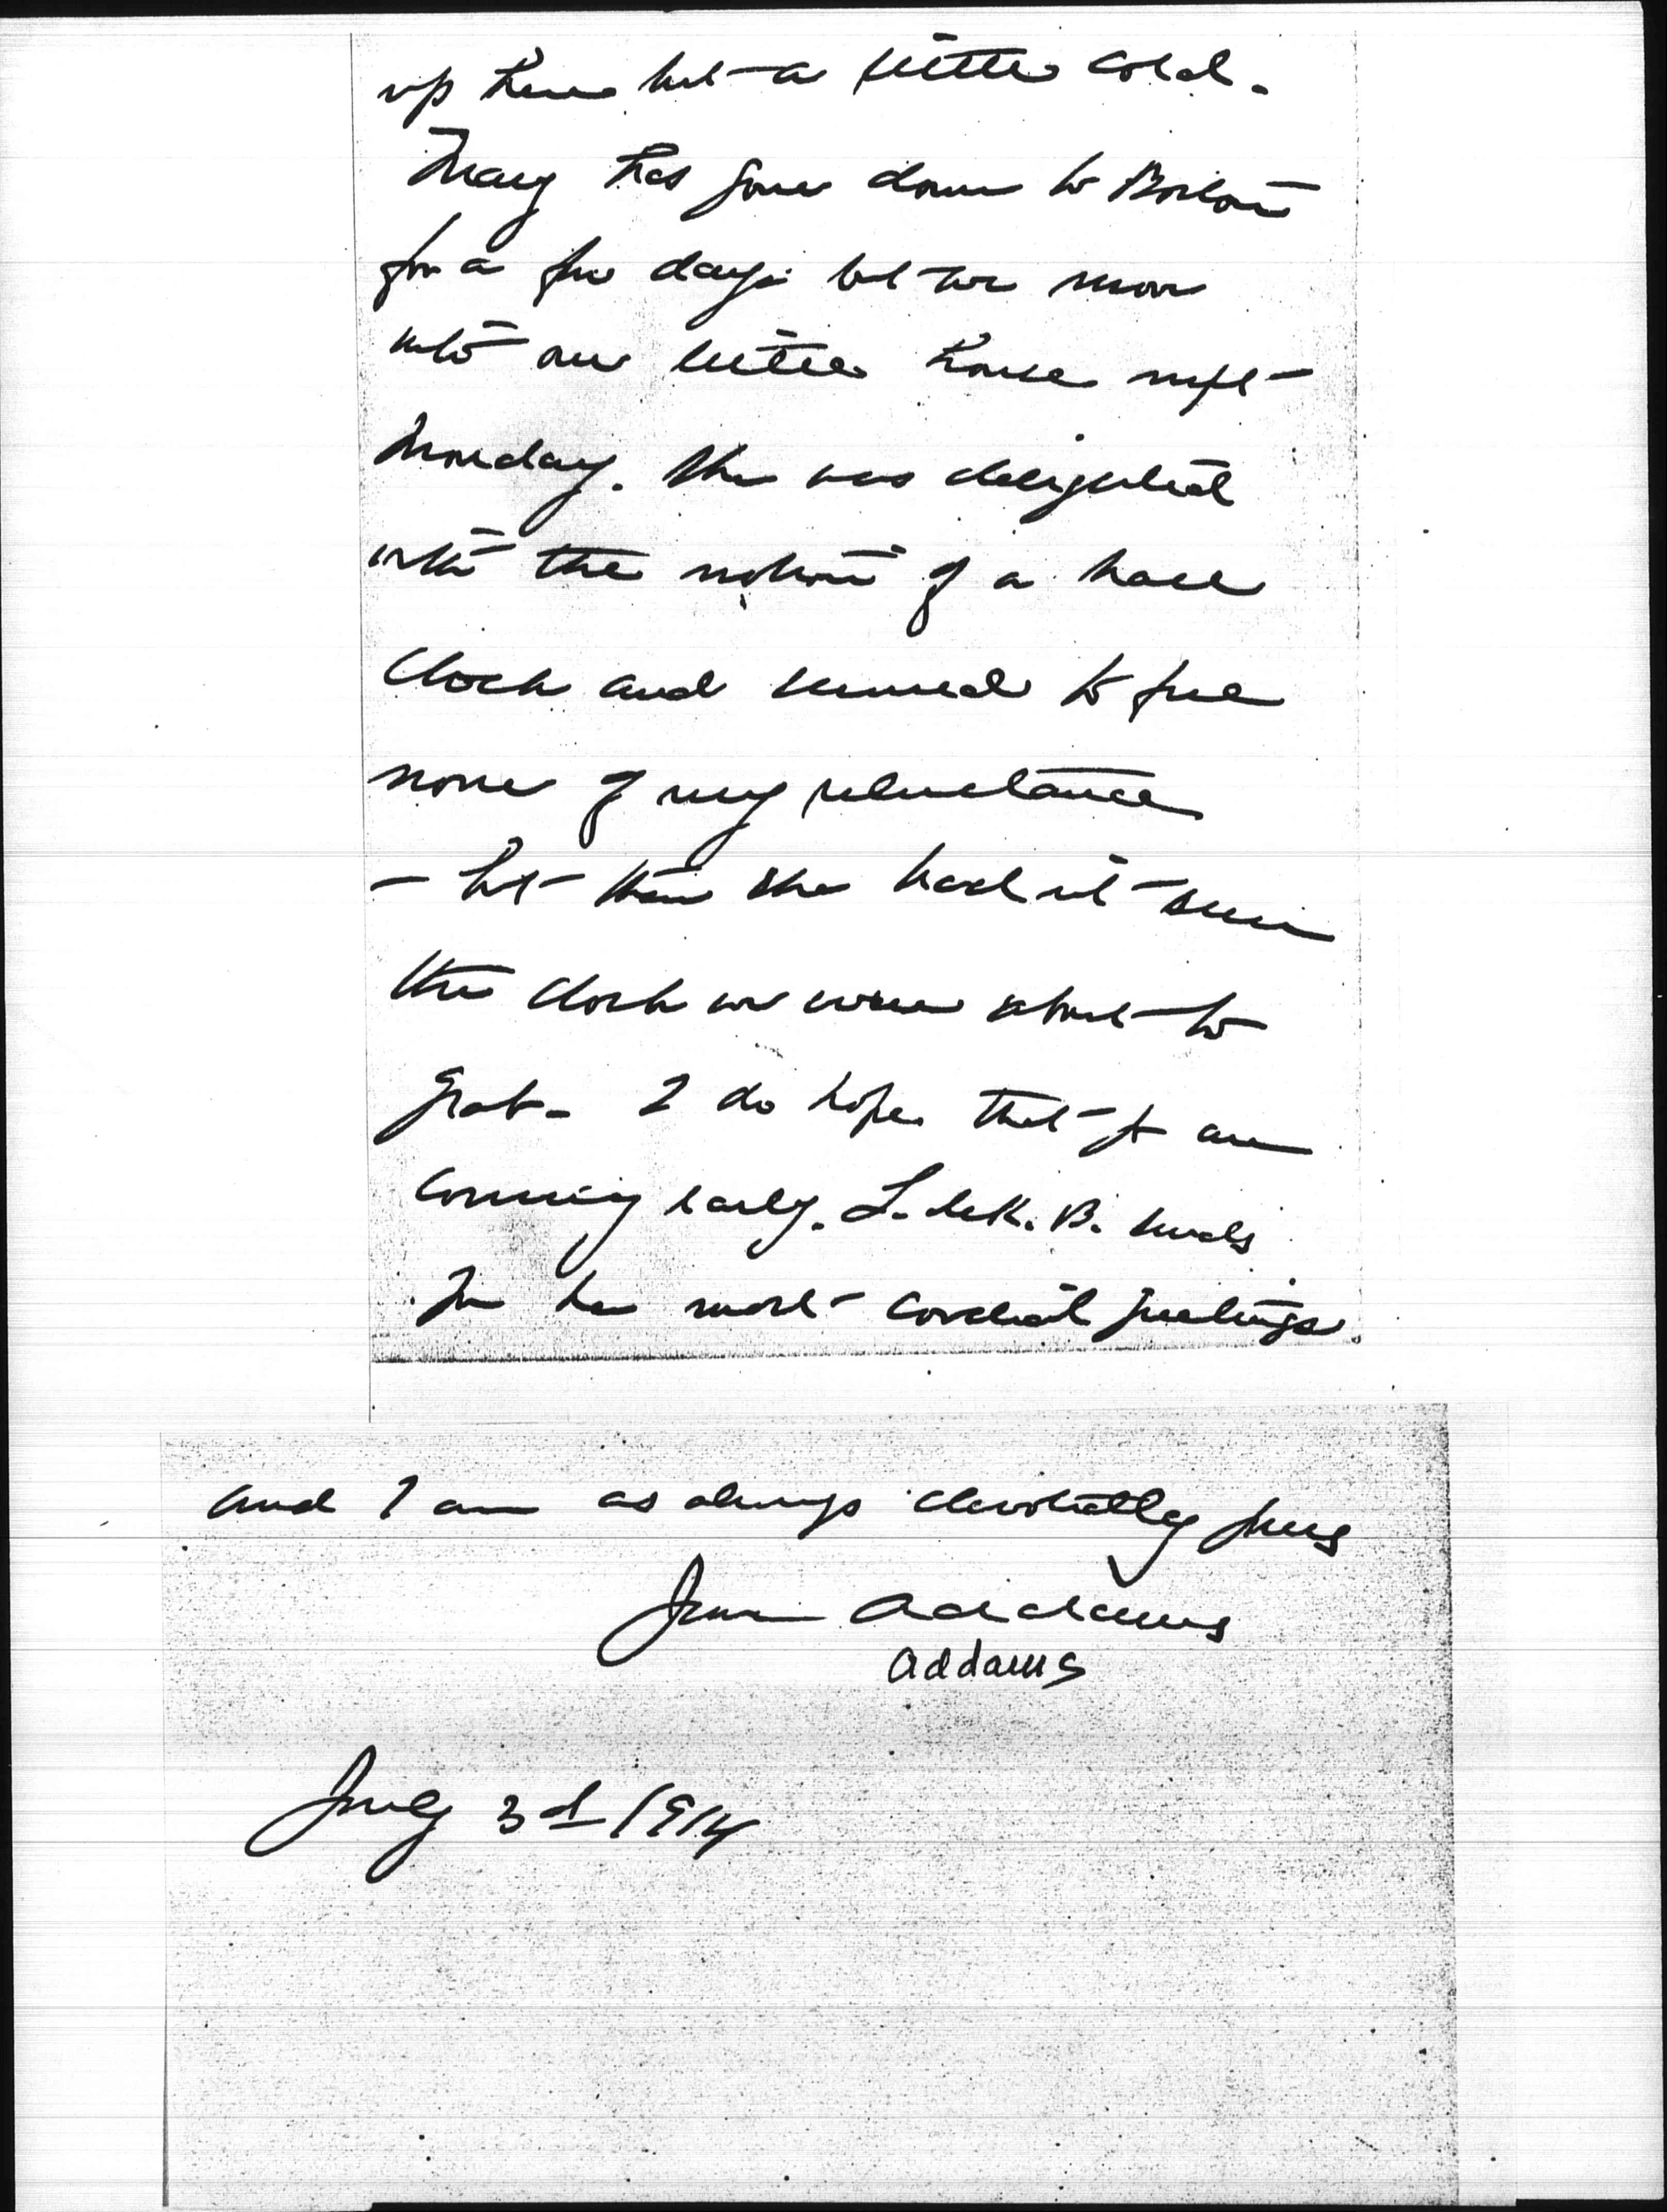 up here but a little cold.
Mary has gone down to Boston
for a few days but we move
into our little house next
Monday. She was delighted
with the notion of a hall
clock and seemed to feel
none of my reluctance
– but then she hadn't seen
the clock we were about to
grab. I do hope that yo are
coming early. L. deK. B. sends
yo her most cordial feelings
and I am as always devotedly yours
Jane Addams
Addams
July 3d 1914